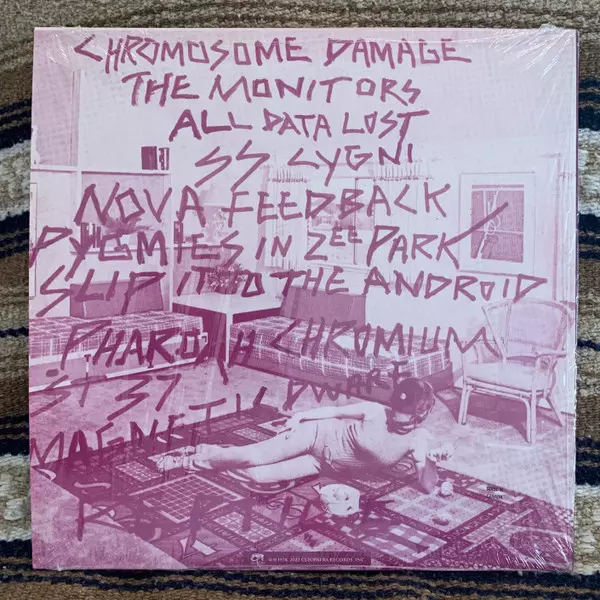 CHROMOSOME DAMAGE
THE MONITORS
ALL DATA LOST
SS CYGNI
NOVA FEEDBACK
PYGMIES IN ZEE PARK
SLIP IT TO THE ANDROID
PHAROAH CHROMIUM
ST 37
MAGNETIC DWARF
CLEOPATRA RECORDS, INC